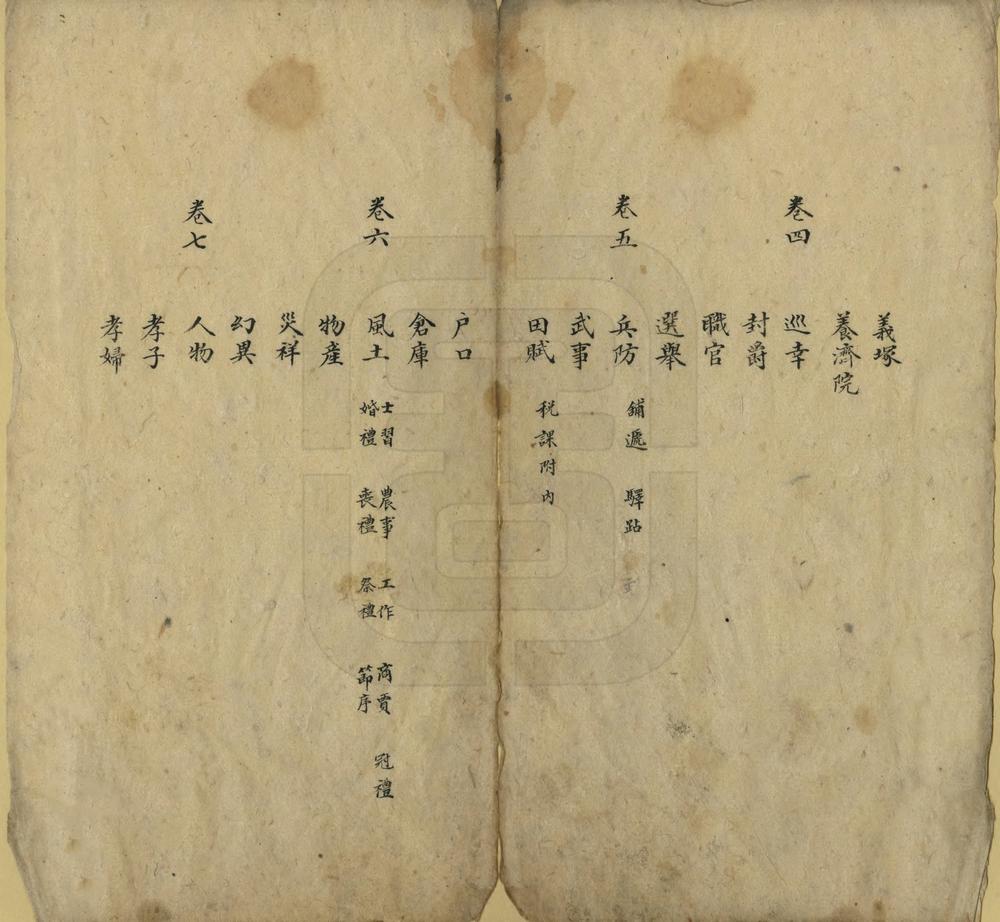 義塚
養濟院
卷四
巡幸
封爵
職官
選舉
卷五
兵防 鋪遞 驛跕
武事
田賦 税課附内
户口
倉庫
卷六
風土 士習 農事 工作 商賈 冠禮
婚禮 喪禮 祭禮 節序
物産
災祥
幻異
卷七
人物
孝子
孝婦